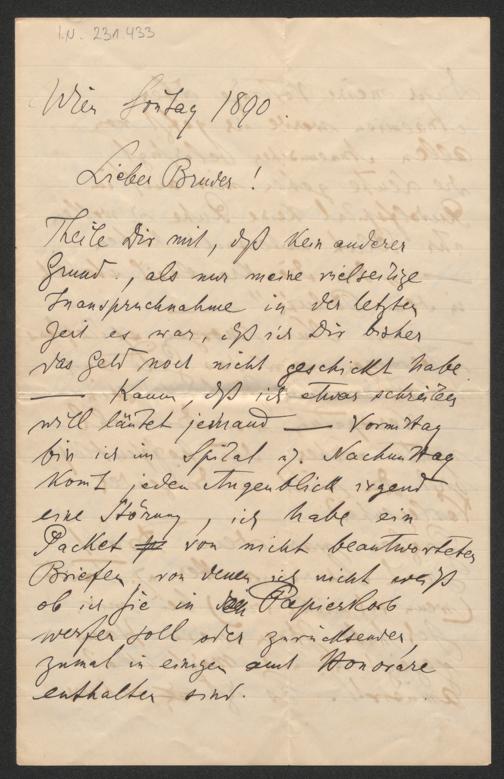 I.N. 231.433
Wien Sontag 1890.
Lieber Bruder!
Theile Dir mit, dß kein anderer
Grund, als nur meine vielseitige
Inanspruchnahme in der letzten
Zeit es war, dß ich Dir bisher
das Geld noch nicht geschickt habe
— Kaum, dß ich etwas schreiben
will läutet jemand — Vormittag
bin ich im Spital u. Nachmittag
komt jeden Augenblick irgend
eine Störung, ich habe ein
Packet von nicht beantworteten
Briefen, von denen ich nicht weiß
ob ich sie in den Papierkorb
werfen soll oder zurücksenden,
zumal in einigen Honorare
enthalten sind.